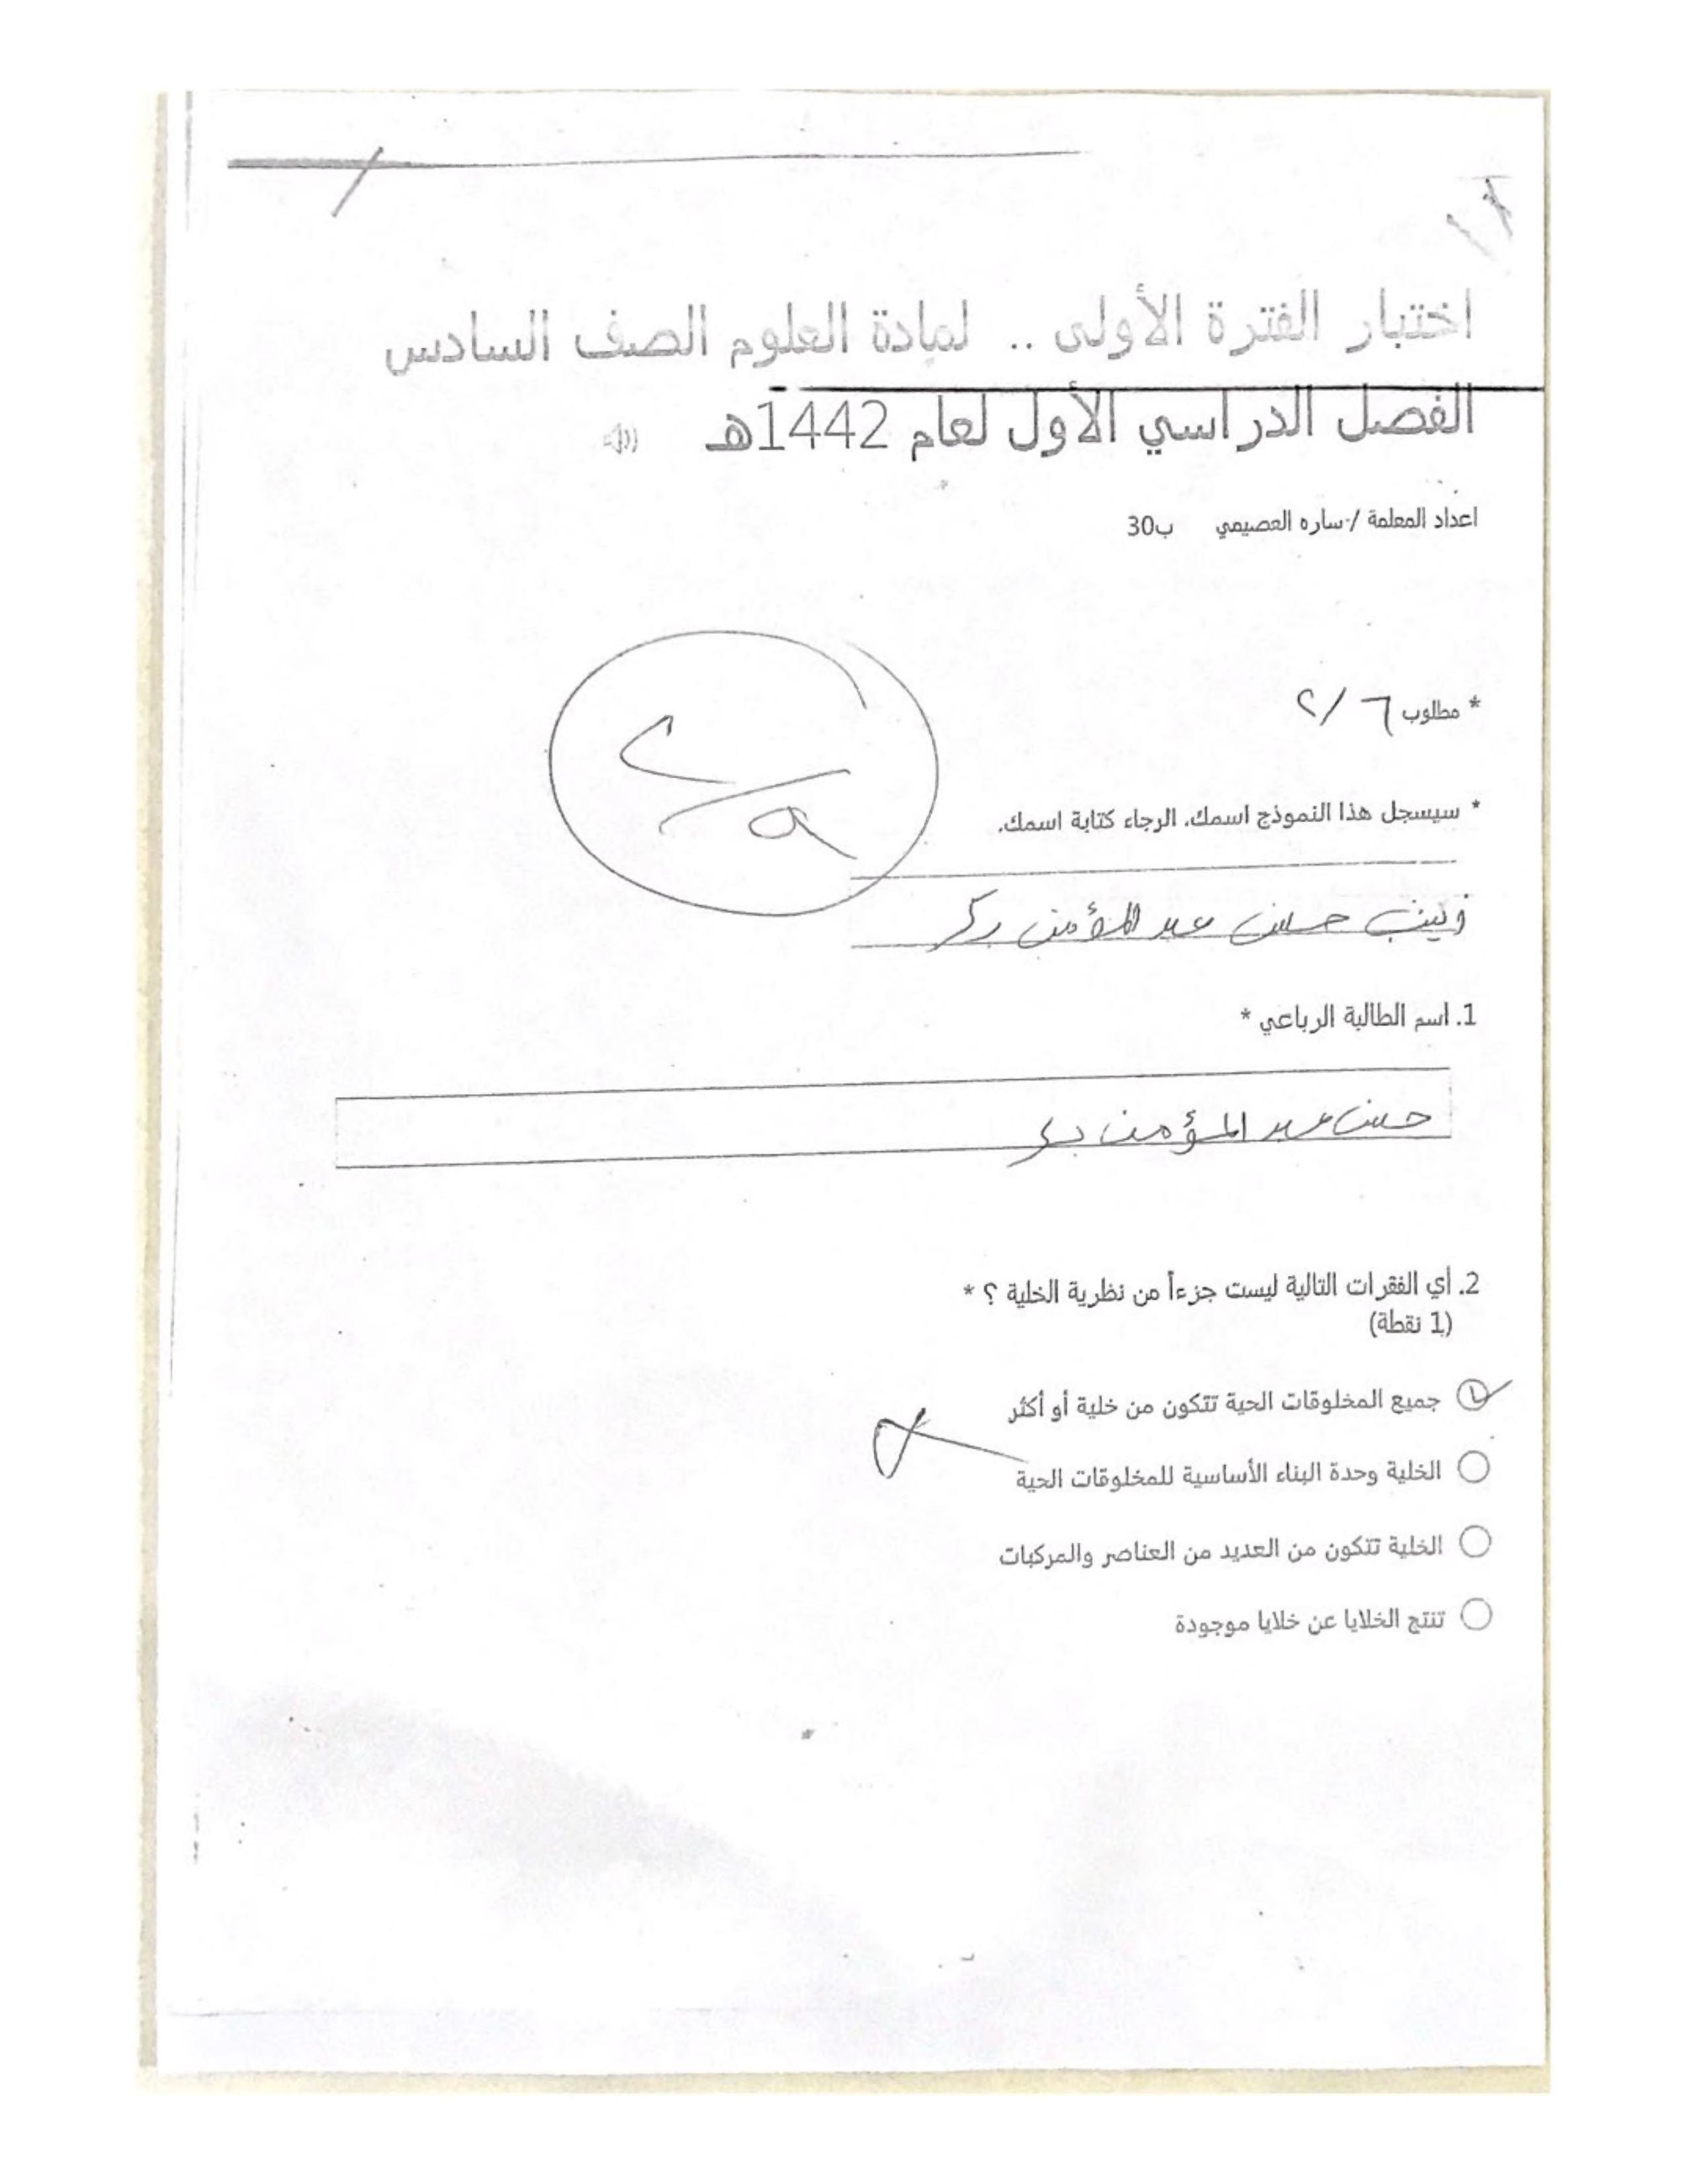 اختبار الفترة الأولى .. لمادة العلوم الصف السادس
الفصل الدراسي الأول لعام 1442هـ
اعداد المعلمة / ساره العصيمي ب30
* مطلوب ٢/٦
* سيسجل هذا النموذج اسمك، الرجاء كتابة اسمك.
زينب حسن عبد المؤمن
1. اسم الطالبة الرباعي *
حسن عبد المؤمن
2. أي الفقرات التالية ليست جزءاً من نظرية الخلية ؟ *
(1 نقطة)
جميع المخلوقات الحية تتكون من خلية أو أكثر
الخلية وحدة البناء الأساسية للمخلوقات الحية
الخلية تتكون من العديد من العناصر والمركبات
تنتج الخلايا عن خلايا موجودة